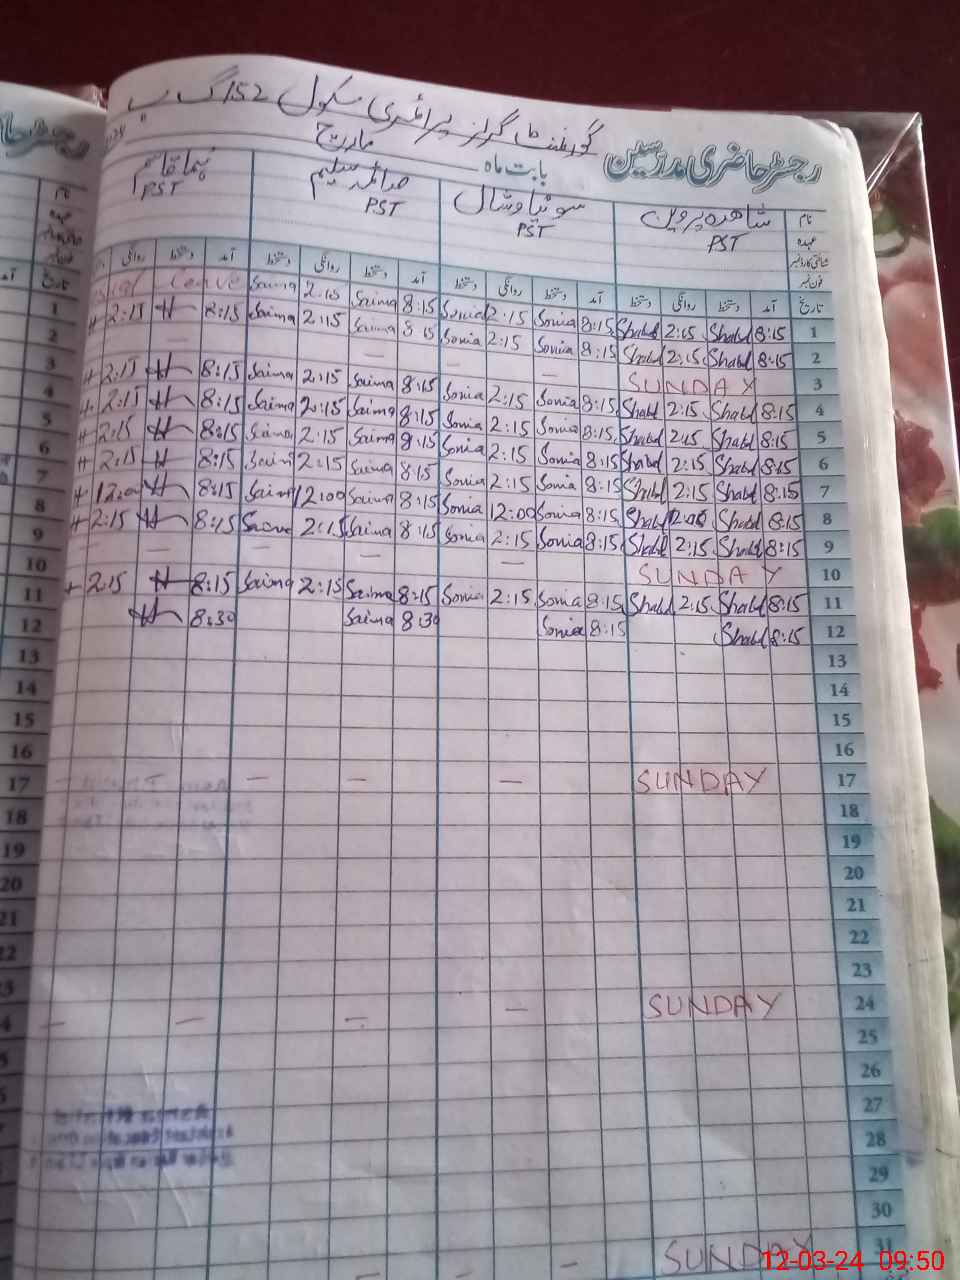 گورنمنٹ گرلز پرائمری سکول 152 گ ب
رجسٹر حاضری مدرسین بابت ماہ مارچ
نام شاھدہ پروین سونیا وشال صائمہ سلیم
عہدہ PST PST PST PST
فون نمبر
تاریخ آمد دستخط روانگی دستخط آمد دستخط روانگی دستخط آمد دستخط روانگی دستخط آمد دستخط روانگی
1 8:15 Shahd 2:15 Shahd 8:15 Sonia 2:15 Sonia 8:15 Saima 2:15 Saima Leave
2 8:15 Shahd 2:15 Shahd 8:15 Sonia 2:15 Sonia 8:15 Saima 2:15 Saima 8:15 H 2:15
3 SUNDAY — — — —
4 8:15 Shahd 2:15 Shahd 8:15 Sonia 2:15 Sonia 8:15 Saima 2:15 Saima 8:15 H 2:15
5 8:15 Shahd 2:15 Shahd 8:15 Sonia 2:15 Sonia 8:15 Saima 2:15 Saima 8:15 H 2:15
6 8:15 Shahd 2:15 Shahd 8:15 Sonia 2:15 Sonia 8:15 Saima 2:15 Saima 8:15 H 2:15
7 8:15 Shahd 2:15 Shahd 8:15 Sonia 2:15 Sonia 8:15 Saima 2:15 Saima 8:15 H 2:15
8 8:15 Shahd 8:15 Sonia 12:00 Sonia 8:15 Saima 12:00 Saima 8:15 H 12:00
9 8:15 Shahd 2:15 Shahd 8:15 Sonia 2:15 Sonia 8:15 Saima 2:15 Saima 8:15 H 2:15
10 SUNDAY — — — — —
11 8:15 Shahd 2:15 Shahd 8:15 Sonia 2:15 Sonia 8:15 Saima 2:15 Saima 8:15 H 2:15
12 8:15 Shahd 8:15 Sonia 8:30 Saima 8:30 H
13
14
15
16
17 SUNDAY — — —
18
19
20
21
22
23
24 SUNDAY — — — —
25
26
27
28
29
30
31 SUNDAY — —
12-03-24 09:50